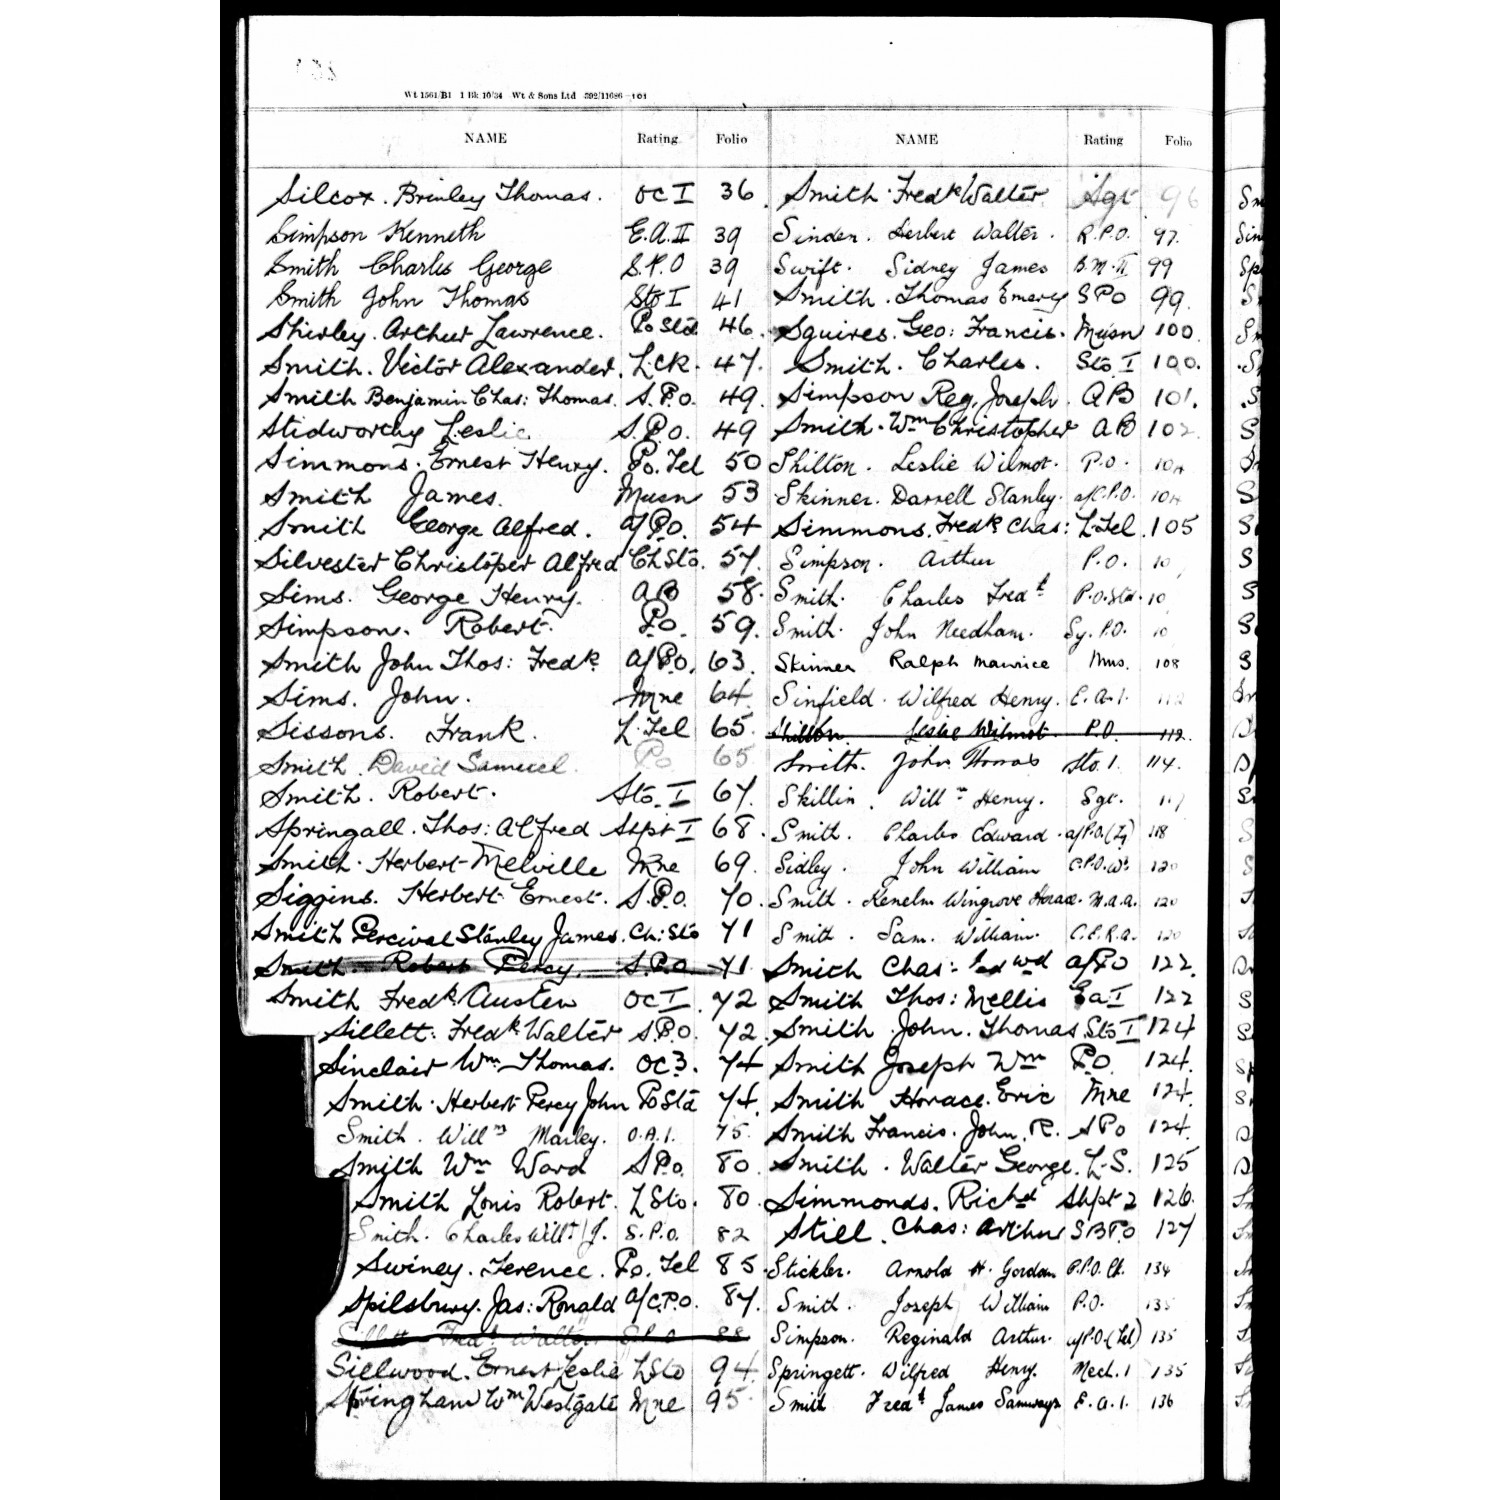 Wt 1561/B1 1 Bk 10/34 Wt & Sons Ltd 592/11686 101
NAME Rating Folio
Silcox. Brinley Thomas. OC I 36
Simpson Kenneth E.A.II 39
Smith Charles George S.P.O 39
Smith John Thomas Sto I 41
Shirley. Arthur Lawrence. Po Std 46.
Smith. Victor Alexander. L.CK. 47.
Smith Benjamin Chas: Thomas. S.P.O. 49.
Stidworthy Leslie S.P.O. 49
Simmons. Ernest Henry. Po. Tel 50
Smith James. Musn 53
Smith George Alfred. a/P.O. 54
Silvester Christoper Alfred Ch Sto. 57.
Sims. George Henry. AB 58.
Simpson. Robert. P.O. 59.
Smith John Thos: Fredk. a/P.O. 63.
Sims. John. Mne 64.
Sissons. Frank. L. Tel 65.
Smith. David Samuel. Po 65
Smith. Robert. Sto. I 67.
Springall. Thos: Alfred Shpt I 68.
Smith. Herbert Melville Mne 69.
Siggins. Herbert Ernest. S.P.O. 70.
Smith Percival Stanley James. Ch: Sto 71
Smith. Robert Percy. S.P.O 71
Smith Fredk Austen OC I. 72
Sillett. Fredk Walter S.P.O. 72.
Sinclair Wm Thomas. OC 3. 74
Smith. Herbert Percy John Po Std 74.
Smith. Willm Marley. O.A.1. 75.
Smith Wm Ward S.P.O. 80.
Smith Louis Robert. L Sto. 80.
Smith. Charles Willm J. S.P.O. 82
Swiney. Terence. Po. Tel 85.
Spilsbury. Jas: Ronald a/C.P.O. 87.
Sillett Fredk Walter S.P.O 88
Sillwood. Ernest Leslie L Sto 94.
Springham Wm Westgate Mne 95.
NAME Rating Folio
Smith Fredk Walter Sgt 96
Sinden. Herbert Walter. R.P.O. 97.
Swift. Sidney James B.M.II 99
Smith. Thomas Emery S P O 99.
Squires. Geo: Francis. Musn 100.
Smith. Charles. Sto. I 100.
Simpson Reg. Joseph. AB 101.
Smith. Wm Christopher AB 102.
Shilton. Leslie Wilmot. P.O. 104
Skinner. Darrell Stanley. a/C.P.O. 104
Simmons. Fredk Chas: L. Tel. 105
Simpson. Arthur P.O. 10
Smith. Charles Fredk P.O. Std. 10
Smith. John Needham. Sy. P.O. 10
Skinner Ralph Maurice Mus. 108
Sinfield. Wilfred Henry. E.A.1. 112
Shilton Leslie Wilmot. P.O. 112.
Smith. John Thomas Sto. 1. 114.
Skillin. Willm Henry. Sgt. 117
Smith. Charles Edward. a/P.O.(Ty) 118
Sidley. John William C.P.O. Wr 120
Smith. Kenelm Wingrove Horace. M.A.A. 120
Smith. Sam. William. C.E.R.A. 120
Smith Chas: Edwd a/P.O 122.
Smith Thos: Mellis Ea I 122
Smith. John. Thomas Sto I 124
Smith Joseph Wm P.O. 124.
Smith Horace. Eric Mne 124.
Smith Francis. John. R. S P O 124.
Smith. Walter George. L. S. 125
Simmonds. Richd Shpt 2 126.
Still. Chas: Arthur S B P O 127
Stickler. Arnold H. Gordon R.P.O. Ch. 134
Smith. Joseph William P.O. 135
Simpson. Reginald Arthur. a/P.O.(Tel) 135
Springett. Wilfred Henry. Mech. 1 135
Smith Fredk James Samways E.A.1. 136